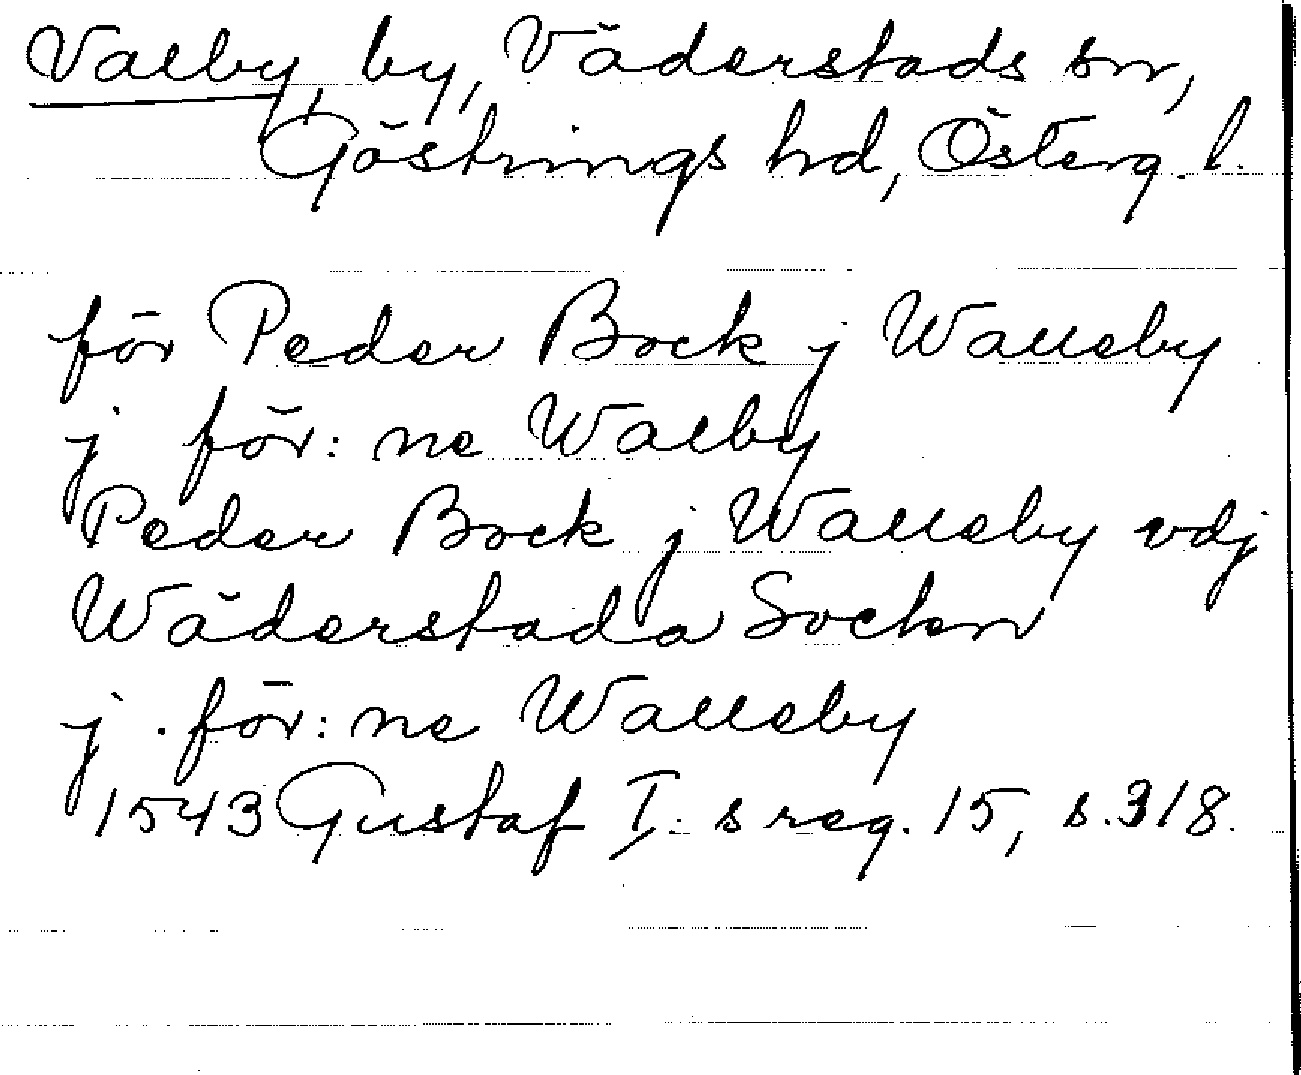 Valby, by, Väderstads sn,
Göstrings hd, Österg. l.
för Peder Bock j Walleby
j för: ne Walby
Peder Bock j Walleby vdj
Wäderstada Socken
j för: ne Walleby
1543 Gustaf I:s reg. 15, s. 318.